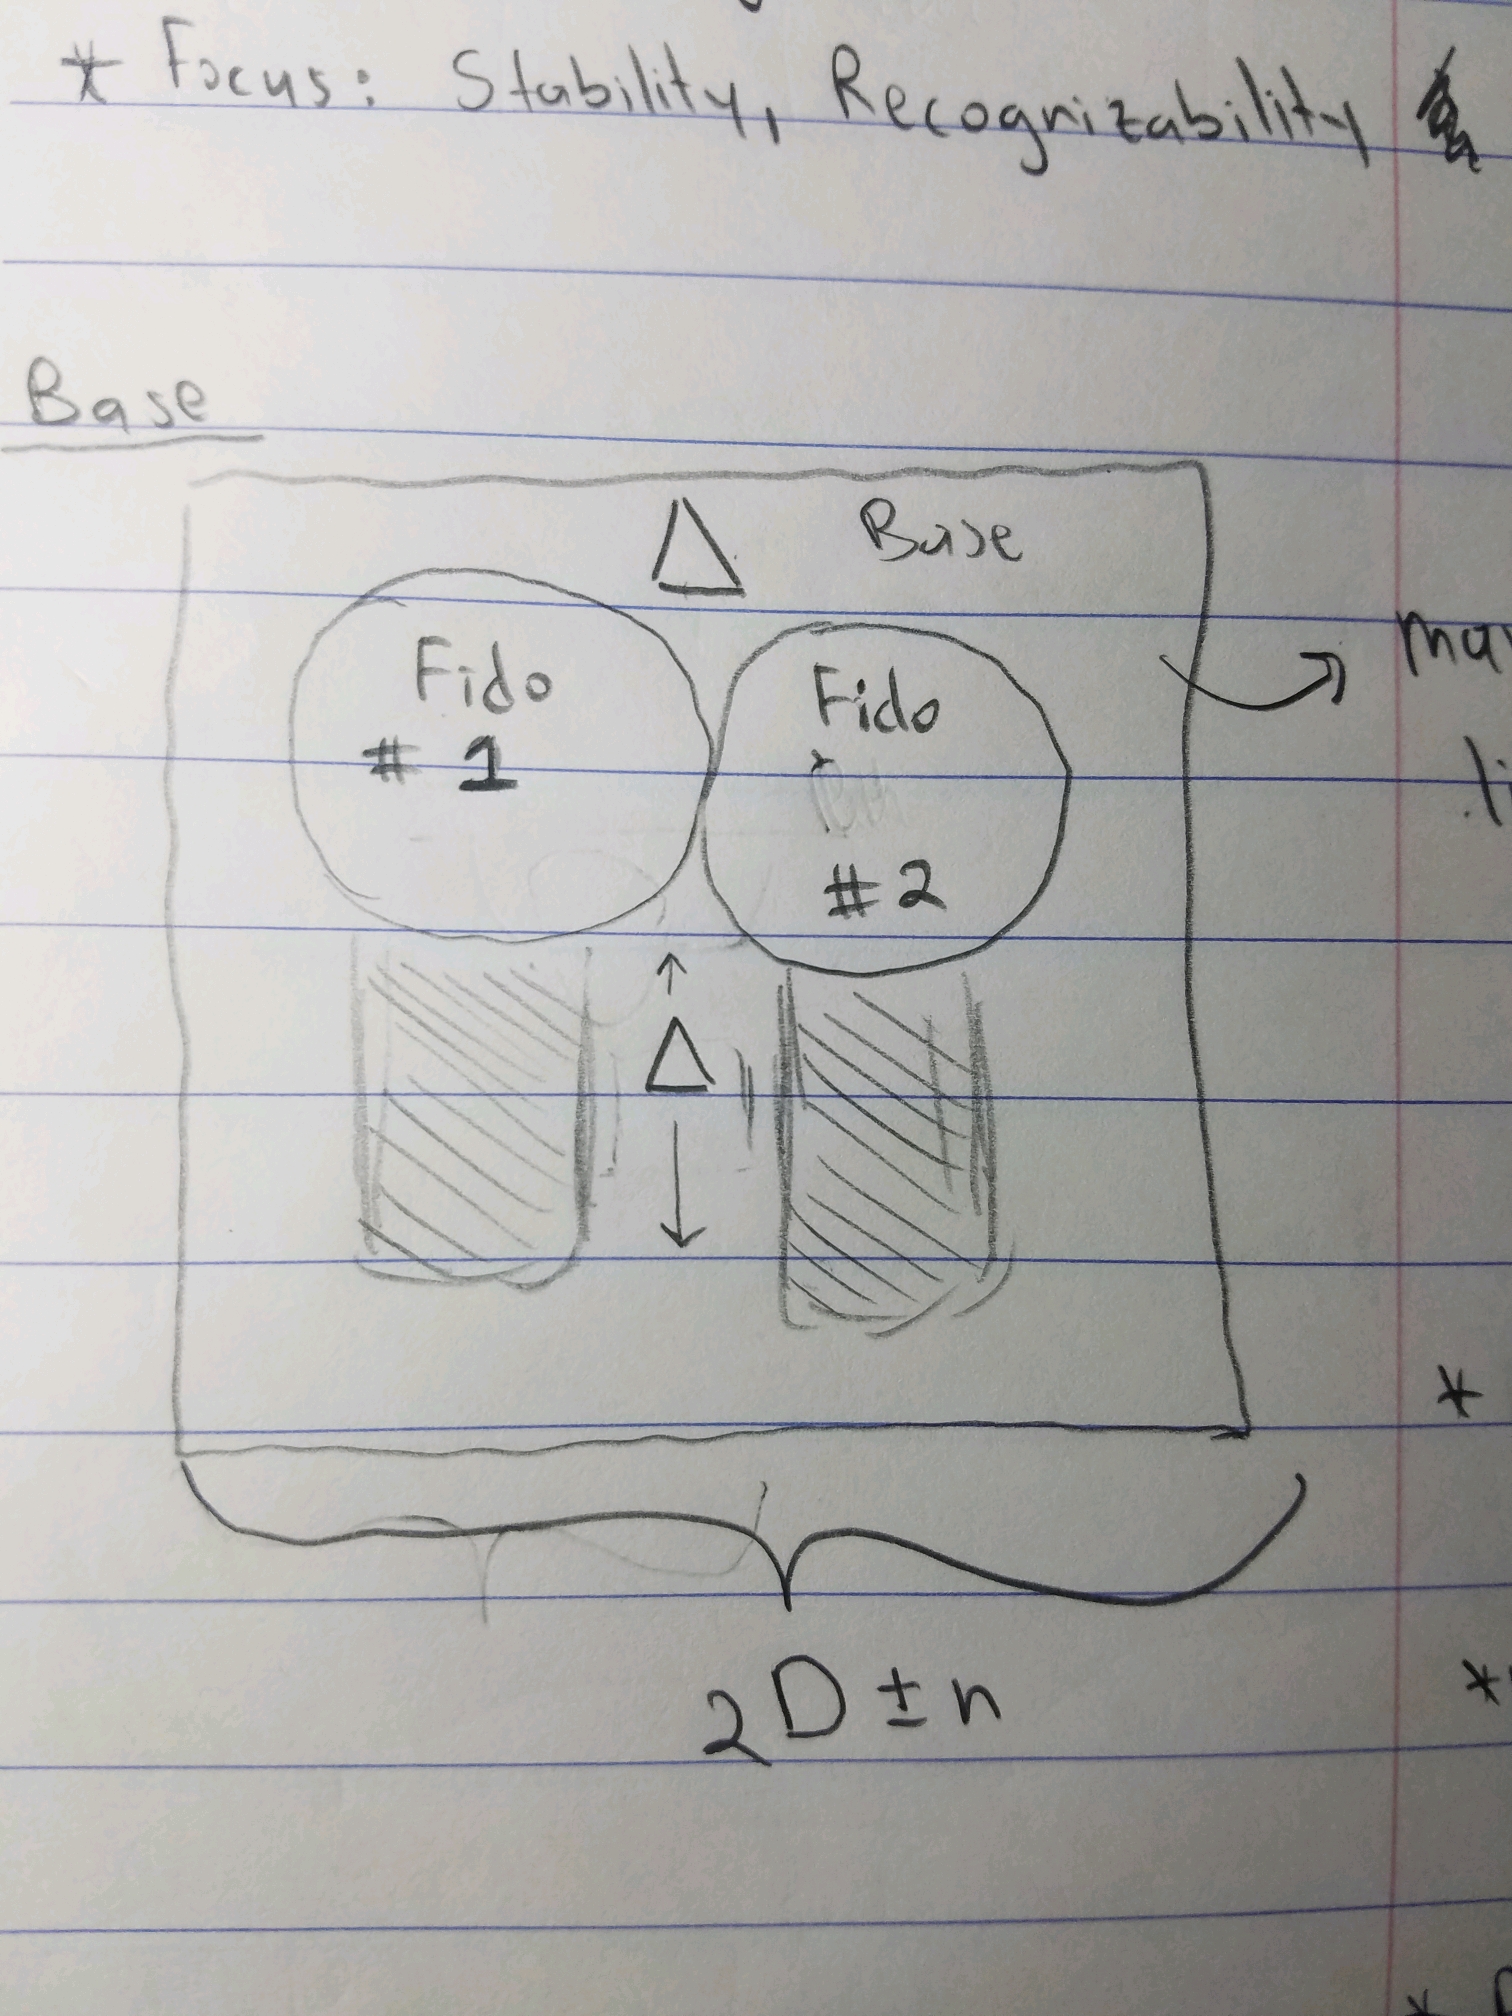 * Focus: Stability, Recognizability
Base
Δ Base
Fido
# 1
Fido
#2
Δ
2D ± n
*
*
*